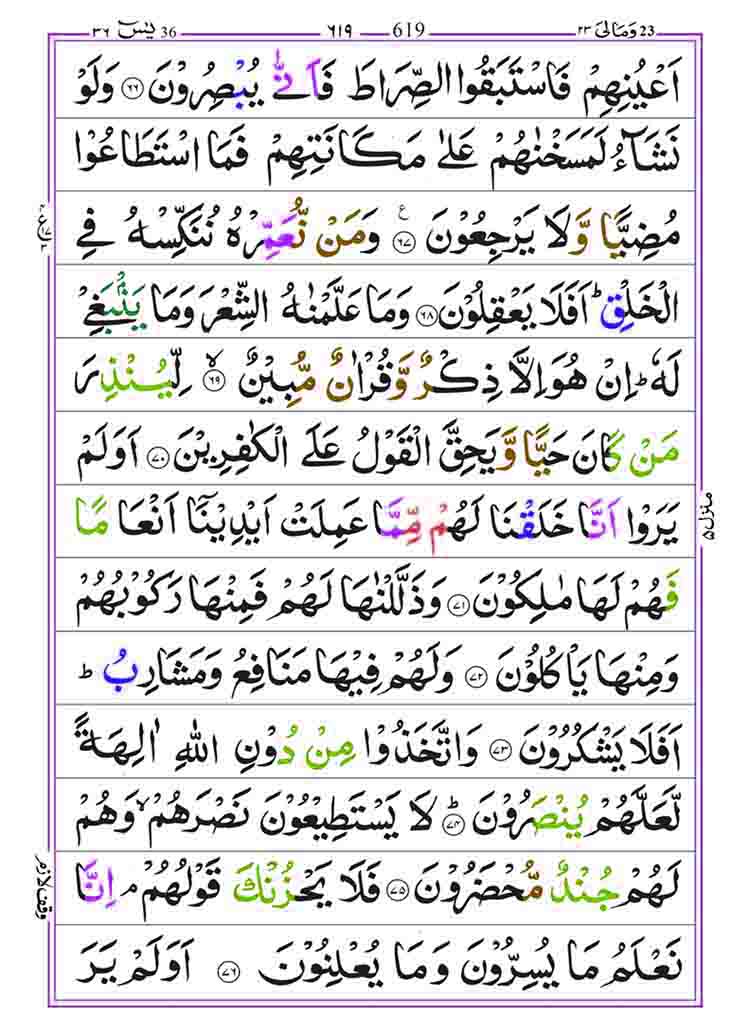 36 يٰسٓ ٣٦
619 ٦١٩
23 وَمَالِىَ ٢٣
اَعْيُنِهِمْ فَاسْتَبَقُوا الصِّرَاطَ فَاَنّٰى يُبْصِرُوْنَ ﴿٦٦﴾ وَلَوْ
نَشَآءُ لَمَسَخْنٰهُمْ عَلٰى مَكَانَتِهِمْ فَمَا اسْتَطَاعُوْا
مُضِيًّا وَّلَا يَرْجِعُوْنَ ﴿٦٧﴾ ع وَمَنْ نُّعَمِّرْهُ نُنَكِّسْهُ فِى
الْخَلْقِ ؕ اَفَلَا يَعْقِلُوْنَ ﴿٦٨﴾ وَمَا عَلَّمْنٰهُ الشِّعْرَ وَمَا يَنْۢبَغِىْ
لَهٗ ؕ اِنْ هُوَ اِلَّا ذِكْرٌ وَّقُرْاٰنٌ مُّبِيْنٌ ﴿٦٩﴾ ۙ لِّيُنْذِرَ
مَنْ كَانَ حَيًّا وَّيَحِقَّ الْقَوْلُ عَلَى الْكٰفِرِيْنَ ﴿٧٠﴾ اَوَلَمْ
يَرَوْا اَنَّا خَلَقْنَا لَهُمْ مِّمَّا عَمِلَتْ اَيْدِيْنَاۤ اَنْعَامًا
فَهُمْ لَهَا مٰلِكُوْنَ ﴿٧١﴾ وَذَلَّلْنٰهَا لَهُمْ فَمِنْهَا رَكُوْبُهُمْ
وَمِنْهَا يَاْكُلُوْنَ ﴿٧٢﴾ وَلَهُمْ فِيْهَا مَنَافِعُ وَمَشَارِبُ ؕ
اَفَلَا يَشْكُرُوْنَ ﴿٧٣﴾ وَاتَّخَذُوْا مِنْ دُوْنِ اللّٰهِ اٰلِهَةً
لَّعَلَّهُمْ يُنْصَرُوْنَ ﴿٧٤﴾ ؕ لَا يَسْتَطِيْعُوْنَ نَصْرَهُمْ ۙ وَهُمْ
لَهُمْ جُنْدٌ مُّحْضَرُوْنَ ﴿٧٥﴾ فَلَا يَحْزُنْكَ قَوْلُهُمْ ۘ اِنَّا
نَعْلَمُ مَا يُسِرُّوْنَ وَمَا يُعْلِنُوْنَ ﴿٧٦﴾ اَوَلَمْ يَرَ
منزل ٥
وقف لازم